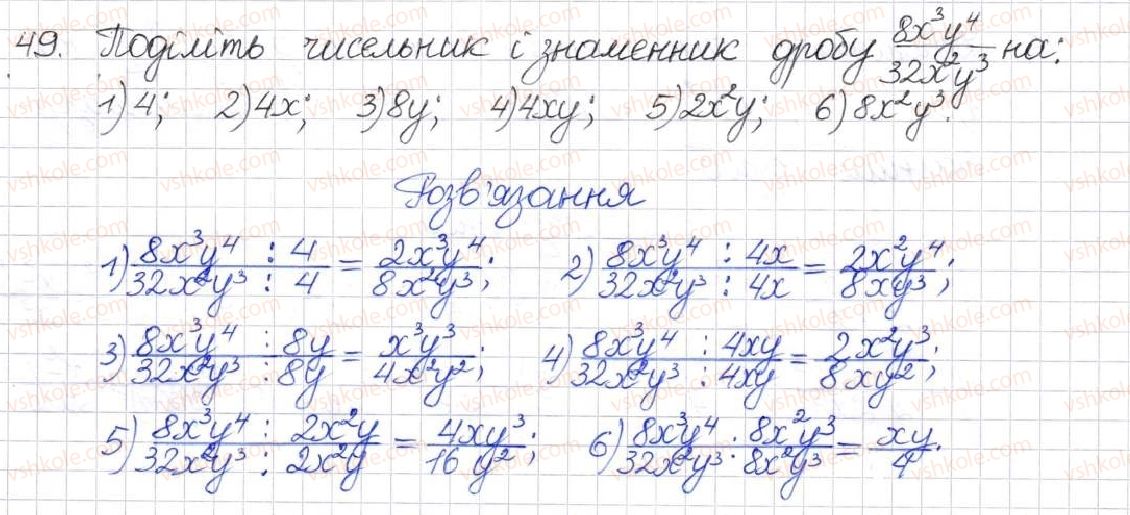 49. Поділіть чисельник і знаменник дробу \frac{8x^3y^4}{32x^2y^3} на:
1) 4; 2) 4x; 3) 8y; 4) 4xy; 5) 2x^2y; 6) 8x^2y^3.
Розв'язання
1) \frac{8x^3y^4 : 4}{32x^2y^3 : 4} = \frac{2x^3y^4}{8x^2y^3}; 2) \frac{8x^3y^4 : 4x}{32x^2y^3 : 4x} = \frac{2x^2y^4}{8xy^3};
3) \frac{8x^3y^4 : 8y}{32x^2y^3 : 8y} = \frac{x^3y^3}{4x^2y^2}; 4) \frac{8x^3y^4 : 4xy}{32x^2y^3 : 4xy} = \frac{2x^2y^3}{8xy^2};
5) \frac{8x^3y^4 : 2x^2y}{32x^2y^3 : 2x^2y} = \frac{4xy^3}{16y^2}; 6) \frac{8x^3y^4 : 8x^2y^3}{32x^2y^3 : 8x^2y^3} = \frac{xy}{4}.
vshkole.com